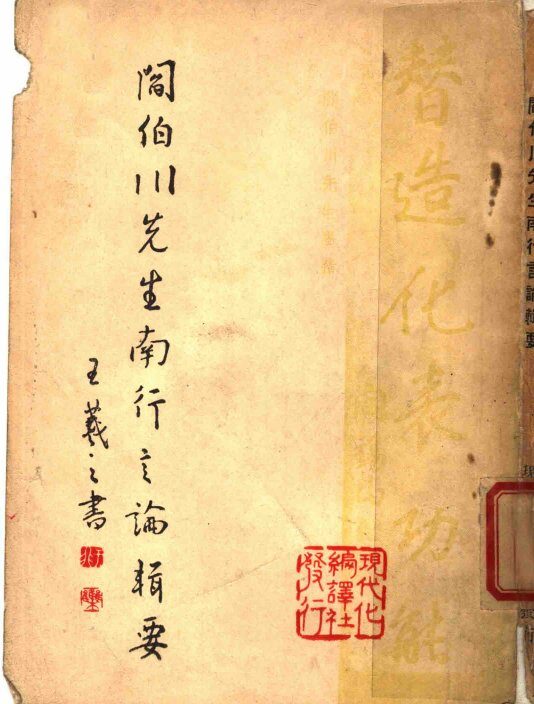 閻伯川先生南行言論輯要
現
替造化表功能
閻伯川先生南行言論輯要
王羲之書
現代化
編譯社
發行